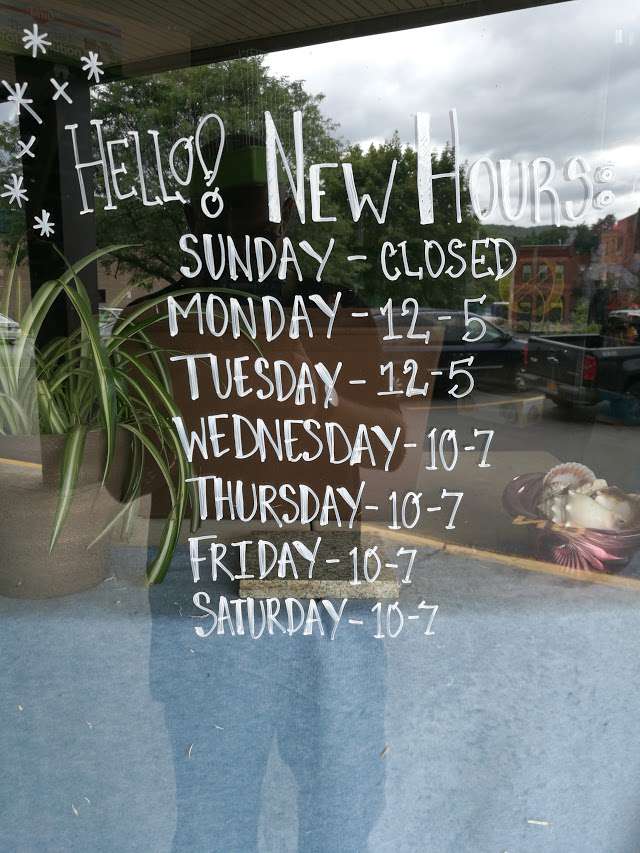 HELLO! NEW HOURS:
SUNDAY - CLOSED
MONDAY - 12-5
TUESDAY - 12-5
WEDNESDAY - 10-7
THURSDAY - 10-7
FRIDAY - 10-7
SATURDAY - 10-7